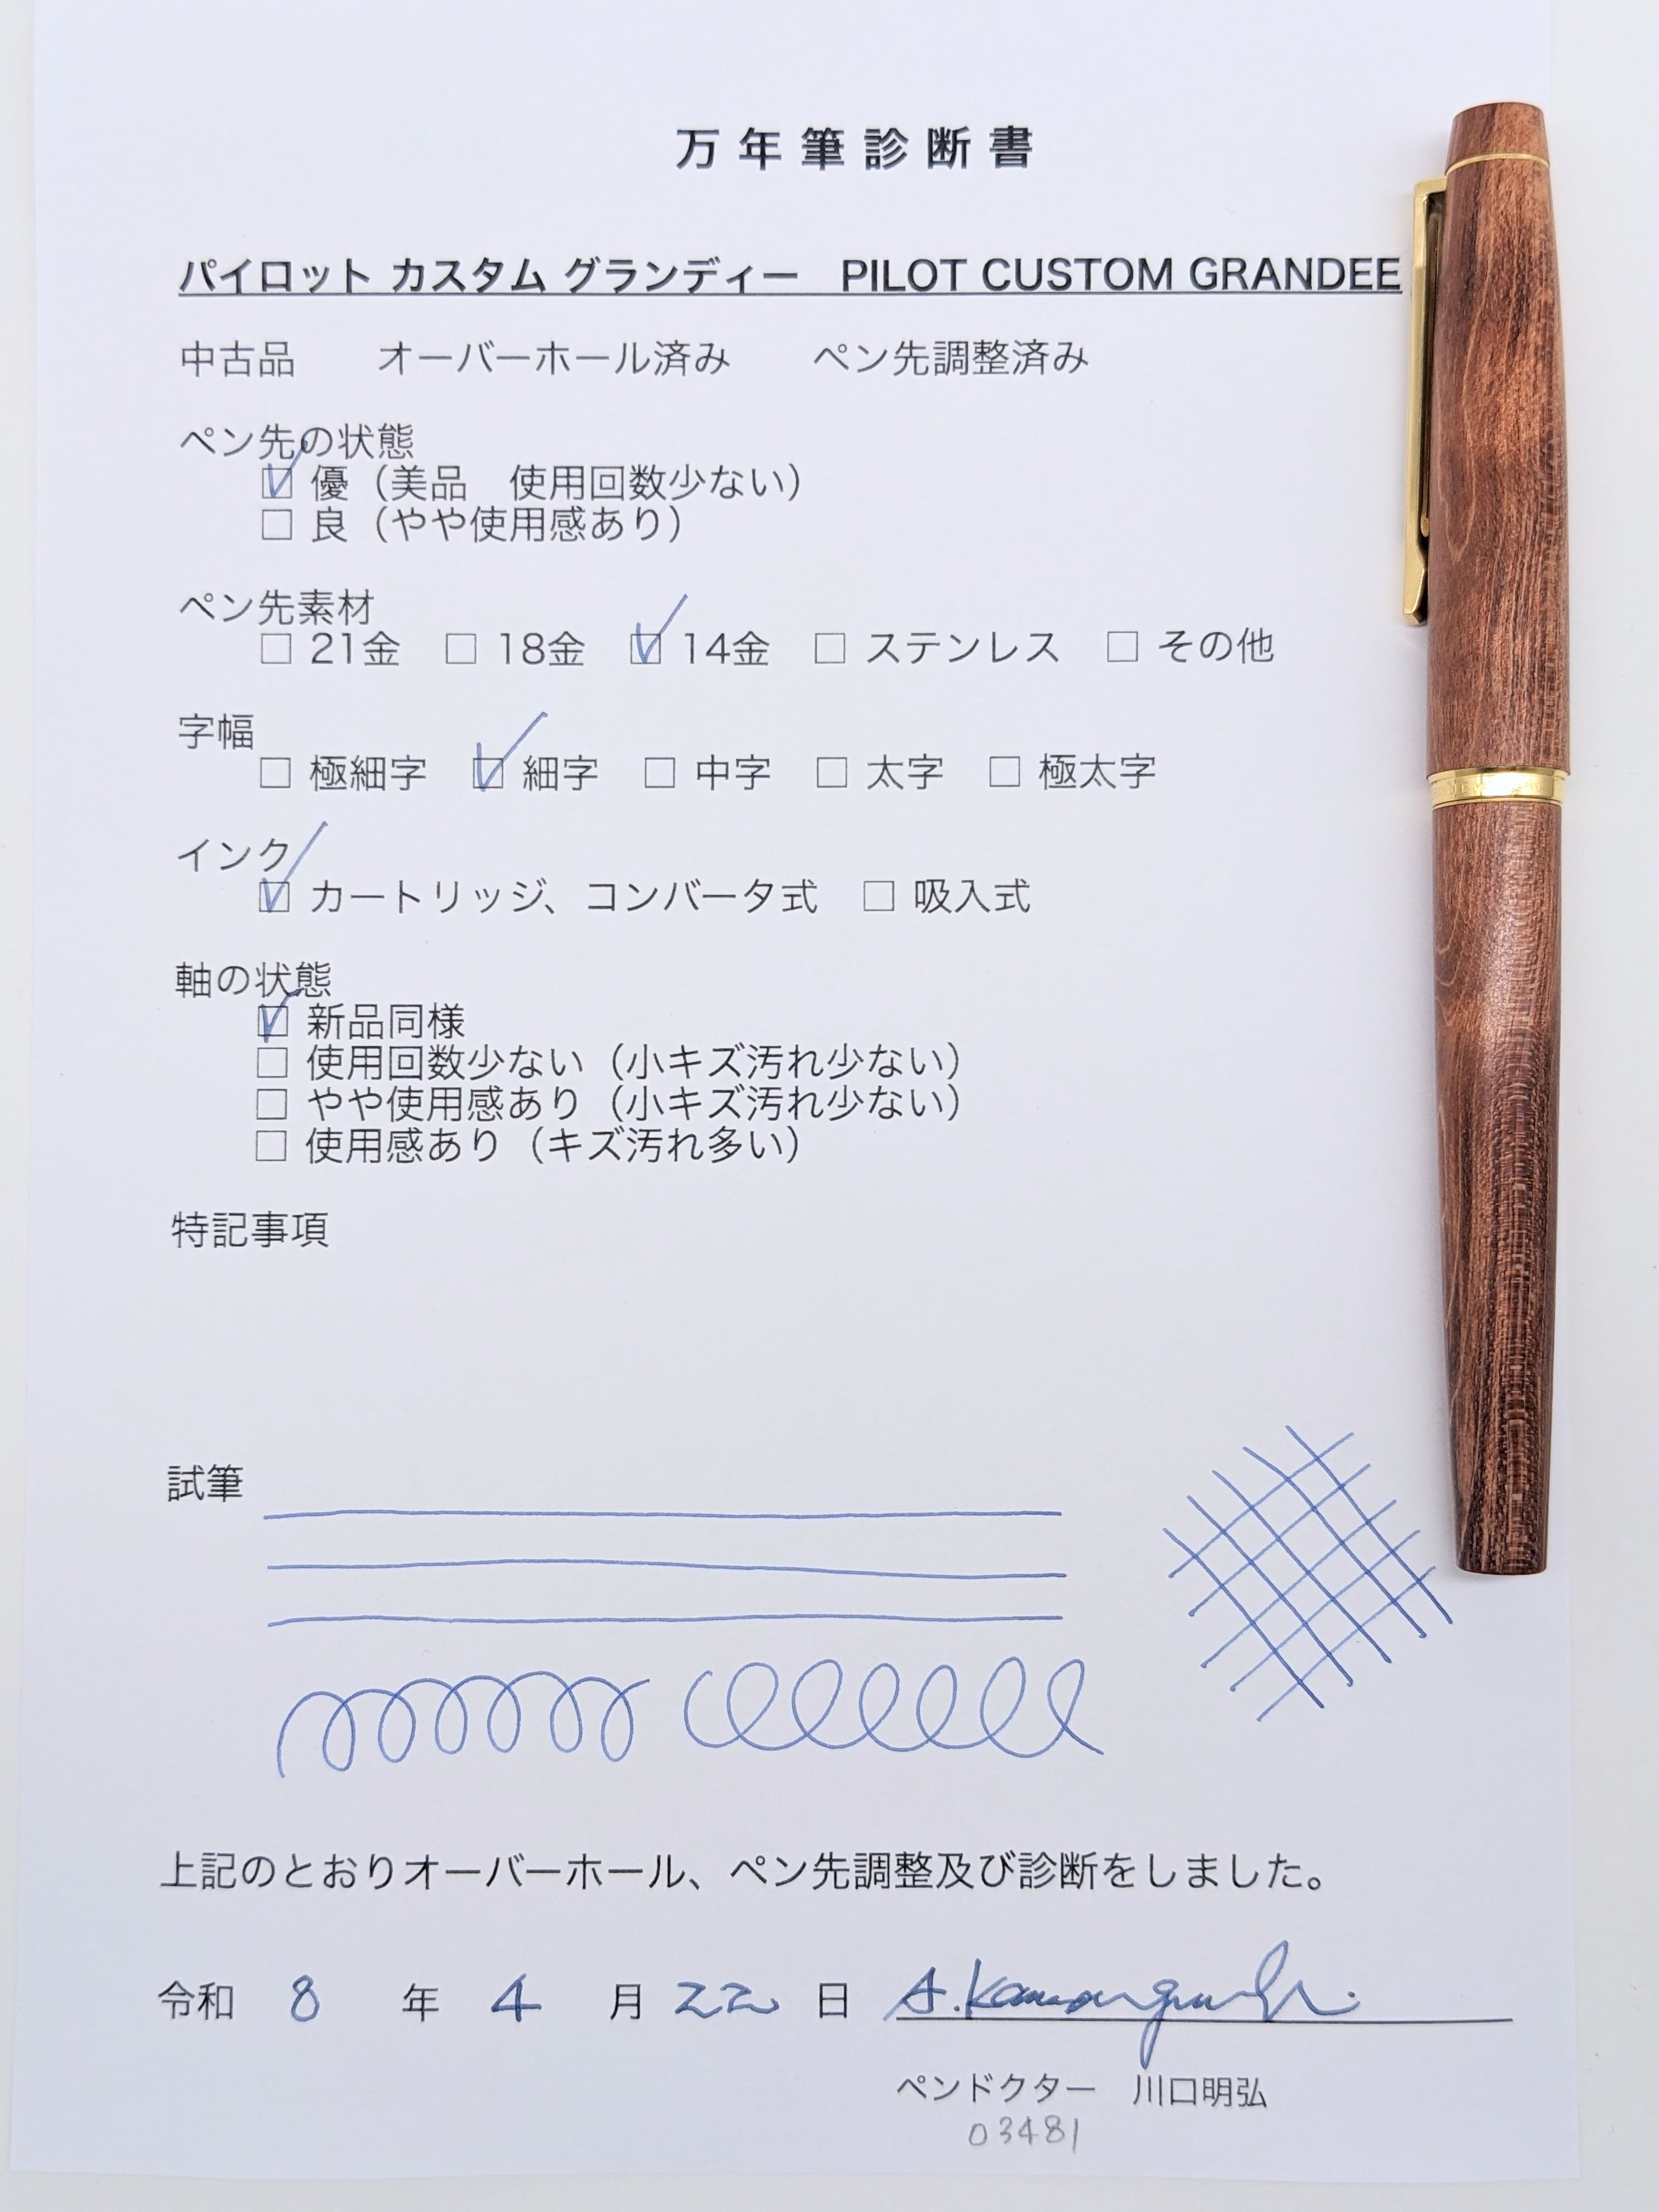 万年筆診断書
パイロット カスタム グランディー　PILOT CUSTOM GRANDEE
中古品　　オーバーホール済み　　ペン先調整済み
ペン先の状態
☑ 優（美品　使用回数少ない）
☐ 良（やや使用感あり）
ペン先素材
☐ 21金　☐ 18金　☑ 14金　☐ ステンレス　☐ その他
字幅
☐ 極細字　☑ 細字　☐ 中字　☐ 太字　☐ 極太字
インク
☑ カートリッジ、コンバータ式　☐ 吸入式
軸の状態
☑ 新品同様
☐ 使用回数少ない（小キズ汚れ少ない）
☐ やや使用感あり（小キズ汚れ少ない）
☐ 使用感あり（キズ汚れ多い）
特記事項
試筆
上記のとおりオーバーホール、ペン先調整及び診断をしました。
令和　8　年　4　月　22　日　A.Kawaguchi.
ペンドクター　川口明弘
03481